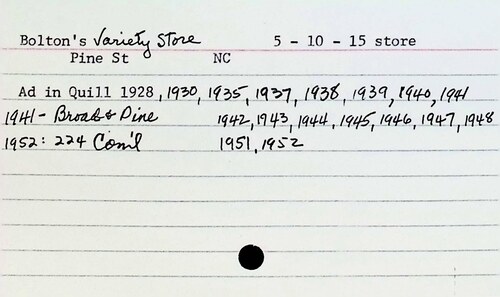 Bolton's Variety Store 5 - 10 - 15 store
Pine St NC
Ad in Quill 1928, 1930, 1935, 1937, 1938, 1939, 1940, 1941
1941 - Broad & Pine 1942, 1943, 1944, 1945, 1946, 1947, 1948
1952: 224 Com'l 1951, 1952